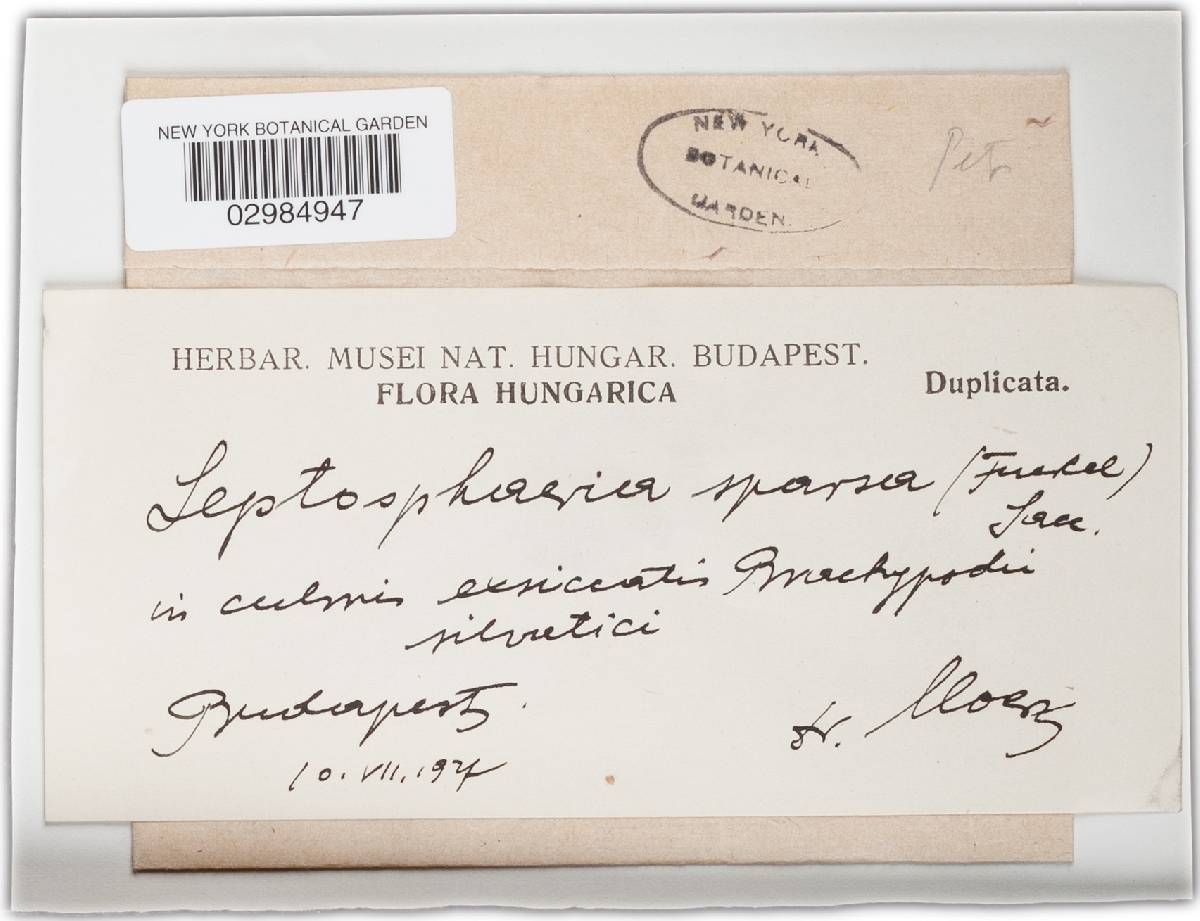 NEW YORK BOTANICAL GARDEN
02984947
NEW YORK
BOTANICAL
GARDEN
HERBAR. MUSEI NAT. HUNGAR. BUDAPEST.
FLORA HUNGARICA
Duplicata.
Leptosphaeria sparsa (Fuckel)
Sacc.
in culmis exsiccatis Brachypodii
silvatici
Budapest.
Dr. Moesz
10. VII.